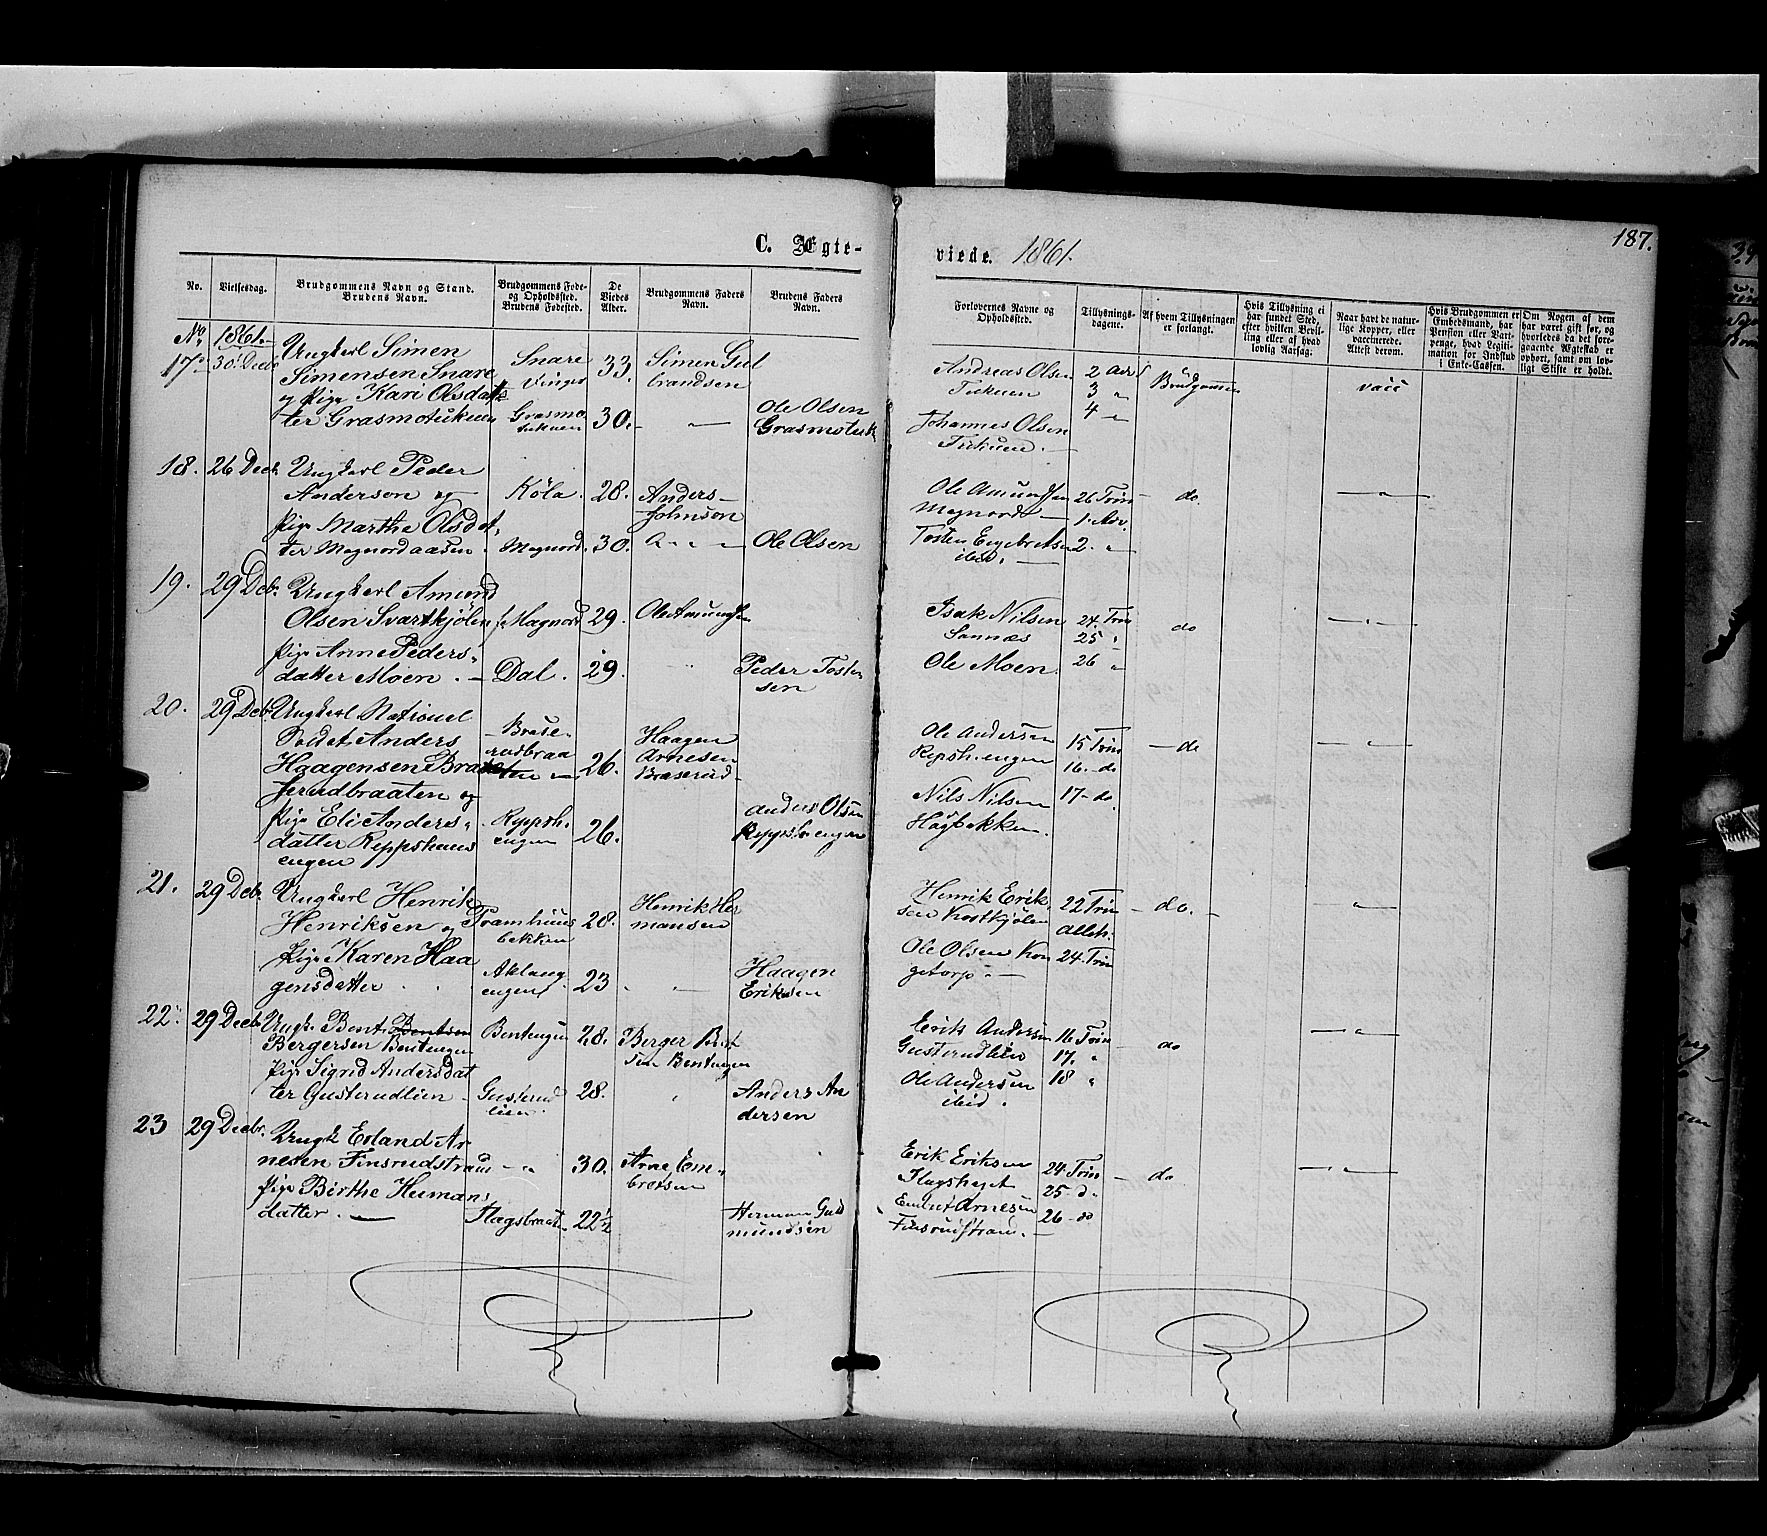 C. Ægteviede. 1861.
187.
No.
Vielsesdag.
Brudgommens Navn og Stand.
Brudens Navn.
Brudgommens Føde-
og Opholdssted.
Brudens Fødested.
De
Viedes
Alder.
Brudgommens Faders
Navn.
Brudens Faders
Navn.
Forlovernes Navne og
Opholdssted.
Tillysnings-
dagene.
Af hvem Tillysningen
er forlangt.
Hvis Tillysning ei
har fundet Sted,
efter hvilken Bevil-
ling eller af hvad
lovlig Aarsag.
Naar havt de natur-
lige Kopper, eller
vaccinerede.
Attest derom.
Hvis Brudgommen er
Embedsmand, har
Pension eller Vart-
penge, hvad Legiti-
mation for Indskud
i Enke-Cassen.
Om Nogen af dem
har været gift før, og
hvorledes da det fore-
gaaende Ægteskab er
ophørt, samt om lov-
ligt Skifte er holdt.
No. 1861.
17. 30 Decb Ungkarl Simen
Simensen Snare
og Pige Kari Olsdat-
ter Grasmotukuen
Snare
Vinger
Grasmo
tukuen
33.
30.
Simen Gul
brandsen
Ole Olsen
Grasmotuk
Andreas Olsen
Tukuen
Johannes Olsen
Tukuen
2 Adv
3 "
4 "
Brudgommen
vacc
18. 26 Decb. Ungkarl Peder
Anderson og
Pige Marthe Olsdot-
ter Magnordaasen
Köla
Magnord.
28.
30.
Anders
Johnson
Ole Olsen
Ole Amundsen
Magnord
Tosten Engebretsen
ibid.
26 Trin
1. Adv.
2. "
do
"
19. 29 Decb. Ungkarl Amund
Olsen Svartkjølen
Pige Anne Peders-
datter Moen.
Magnord
Dal.
29.
29.
Ole Amundsen
Peder Tosten
sen
Isak Nilsen
Sannæs
Ole Moen
24. Trin
25 "
26 "
do
"
20. 29 Decb. Ungkarl National
Soldat Anders
Haagensen Bra
serudbraaten og
Pige Eli Anders-
datter Reppshaus
engen
Brase-
rudbraa
ten
Reppsh.
engen
26.
26.
Haagen
Arnesen
Braserud
Anders Olsen
Reppsh engen
Ole Andersen
Repsh. engen
Nils Nilsen
Høgbakken.
15 Trin
16. do
17. do
do
"
21. 29 Decb. Ungkarl Henrik
Henriksen og
Pige Karen Haa
gensdatter
Framhuus
bekken
Aklang
engen
28.
23
Henrik Her
mansen
Haagen
Eriksen
Henrik Erik-
sen Kortkjølen
Ole Olsen Kon
getorp.
22 Trin
24. Trin
do.
"
22. 29 Decb Ungk. Bent Bentsen
Bergersen Bentengen
Pige Sigrid Andersdat
ter Gusterudlien
Bentengen
Gusterud
lien.
28.
28.
Berger Bent
sen Bentengen
Anders An
dersen
Erik Andersen
Gusterudlien
Ole Andersen
ibid.
16 Trin
17. "
18 "
do
"
23 29 Decbr. Ungk Erland Ar
nesen Finsrudstrøm
Pige Birthe Hermans
datter.
Flagsbraat.
30.
22½
Arne Em-
bretsen
Herman Gud
mundsen
Erik Eriksen
Embret Arnesen
Finsrudstrøm.
24. Trin
25 d.
26 do
do
"